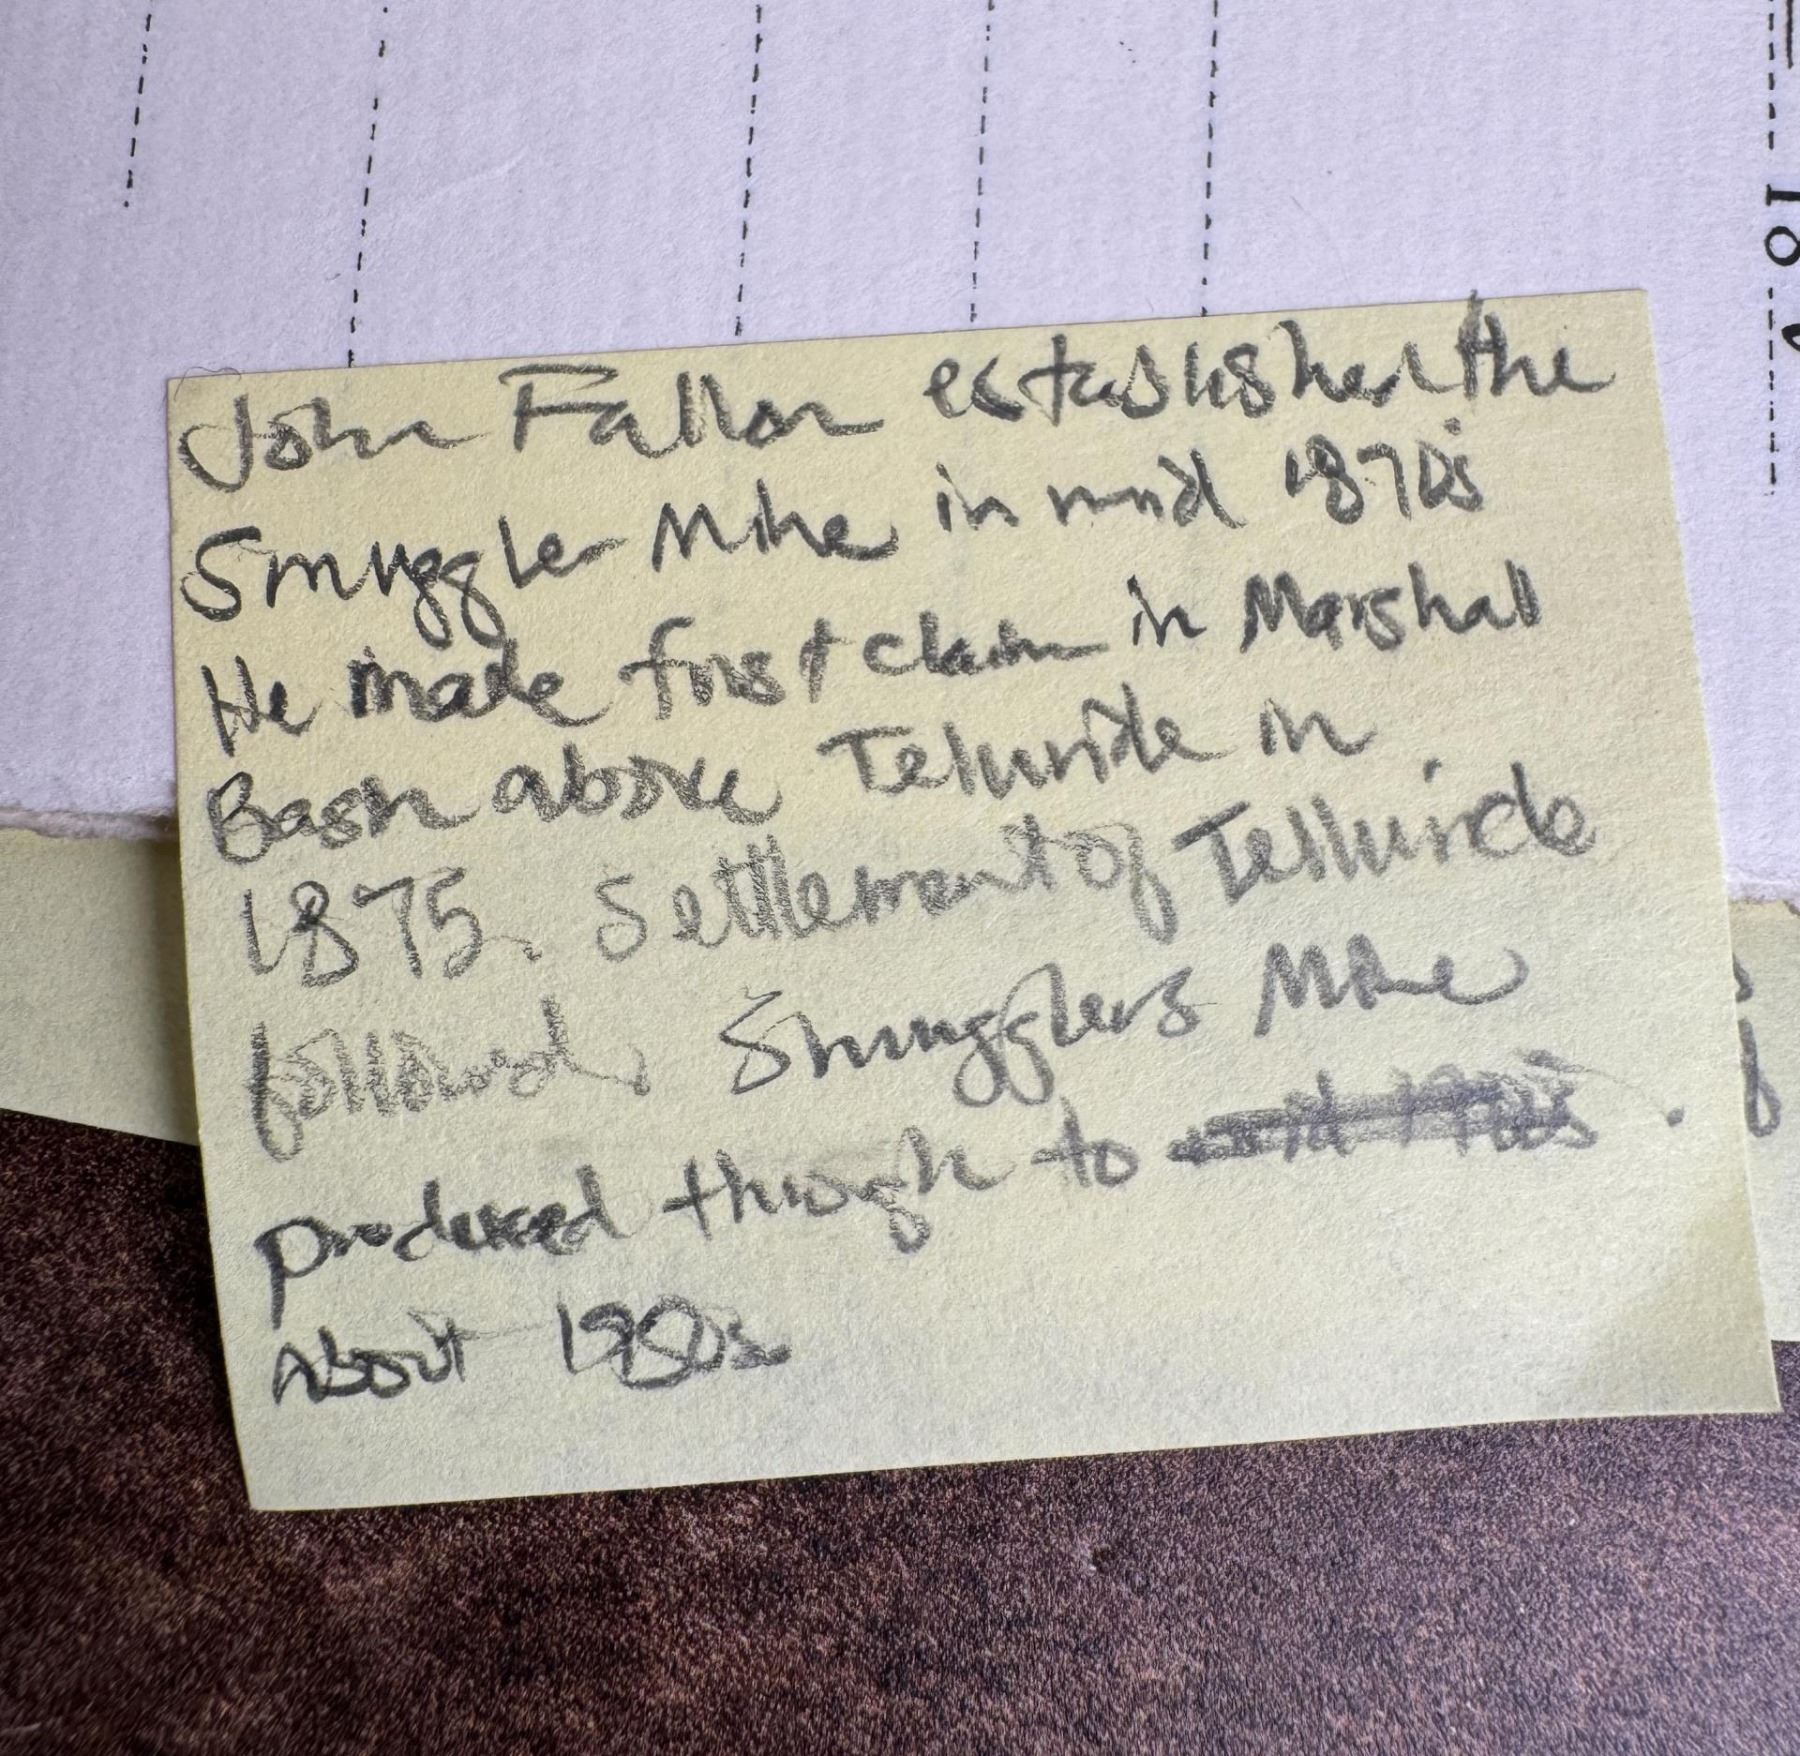 John Fallon established the
Smuggler Mine in mid 1870s
He made first claim in Marshall
Basin above Telluride in
1875. Settlement of Telluride
followed. Smugglers Mine
produced through to mid 1900s.
About 1980s